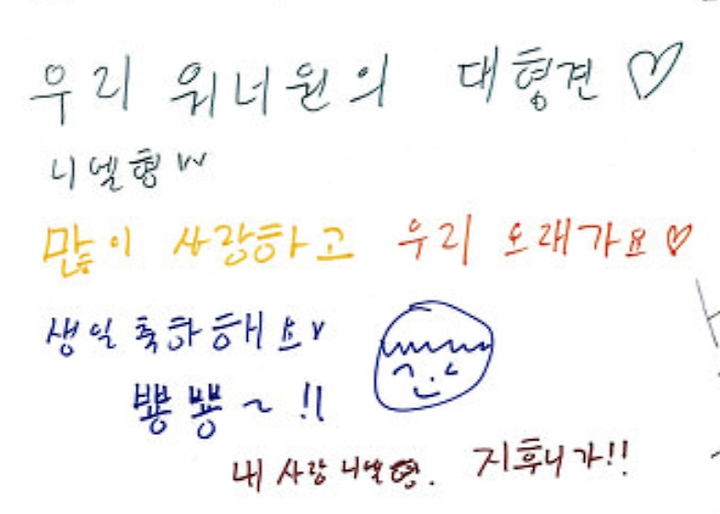 우리 워너원의 대형견 ♡
니엘형 w
많이 사랑하고 우리 오래가요 ♡
생일 축하해요 v
뿅뿅 ~ !!
내 사랑 니엘형. 지후니가!!